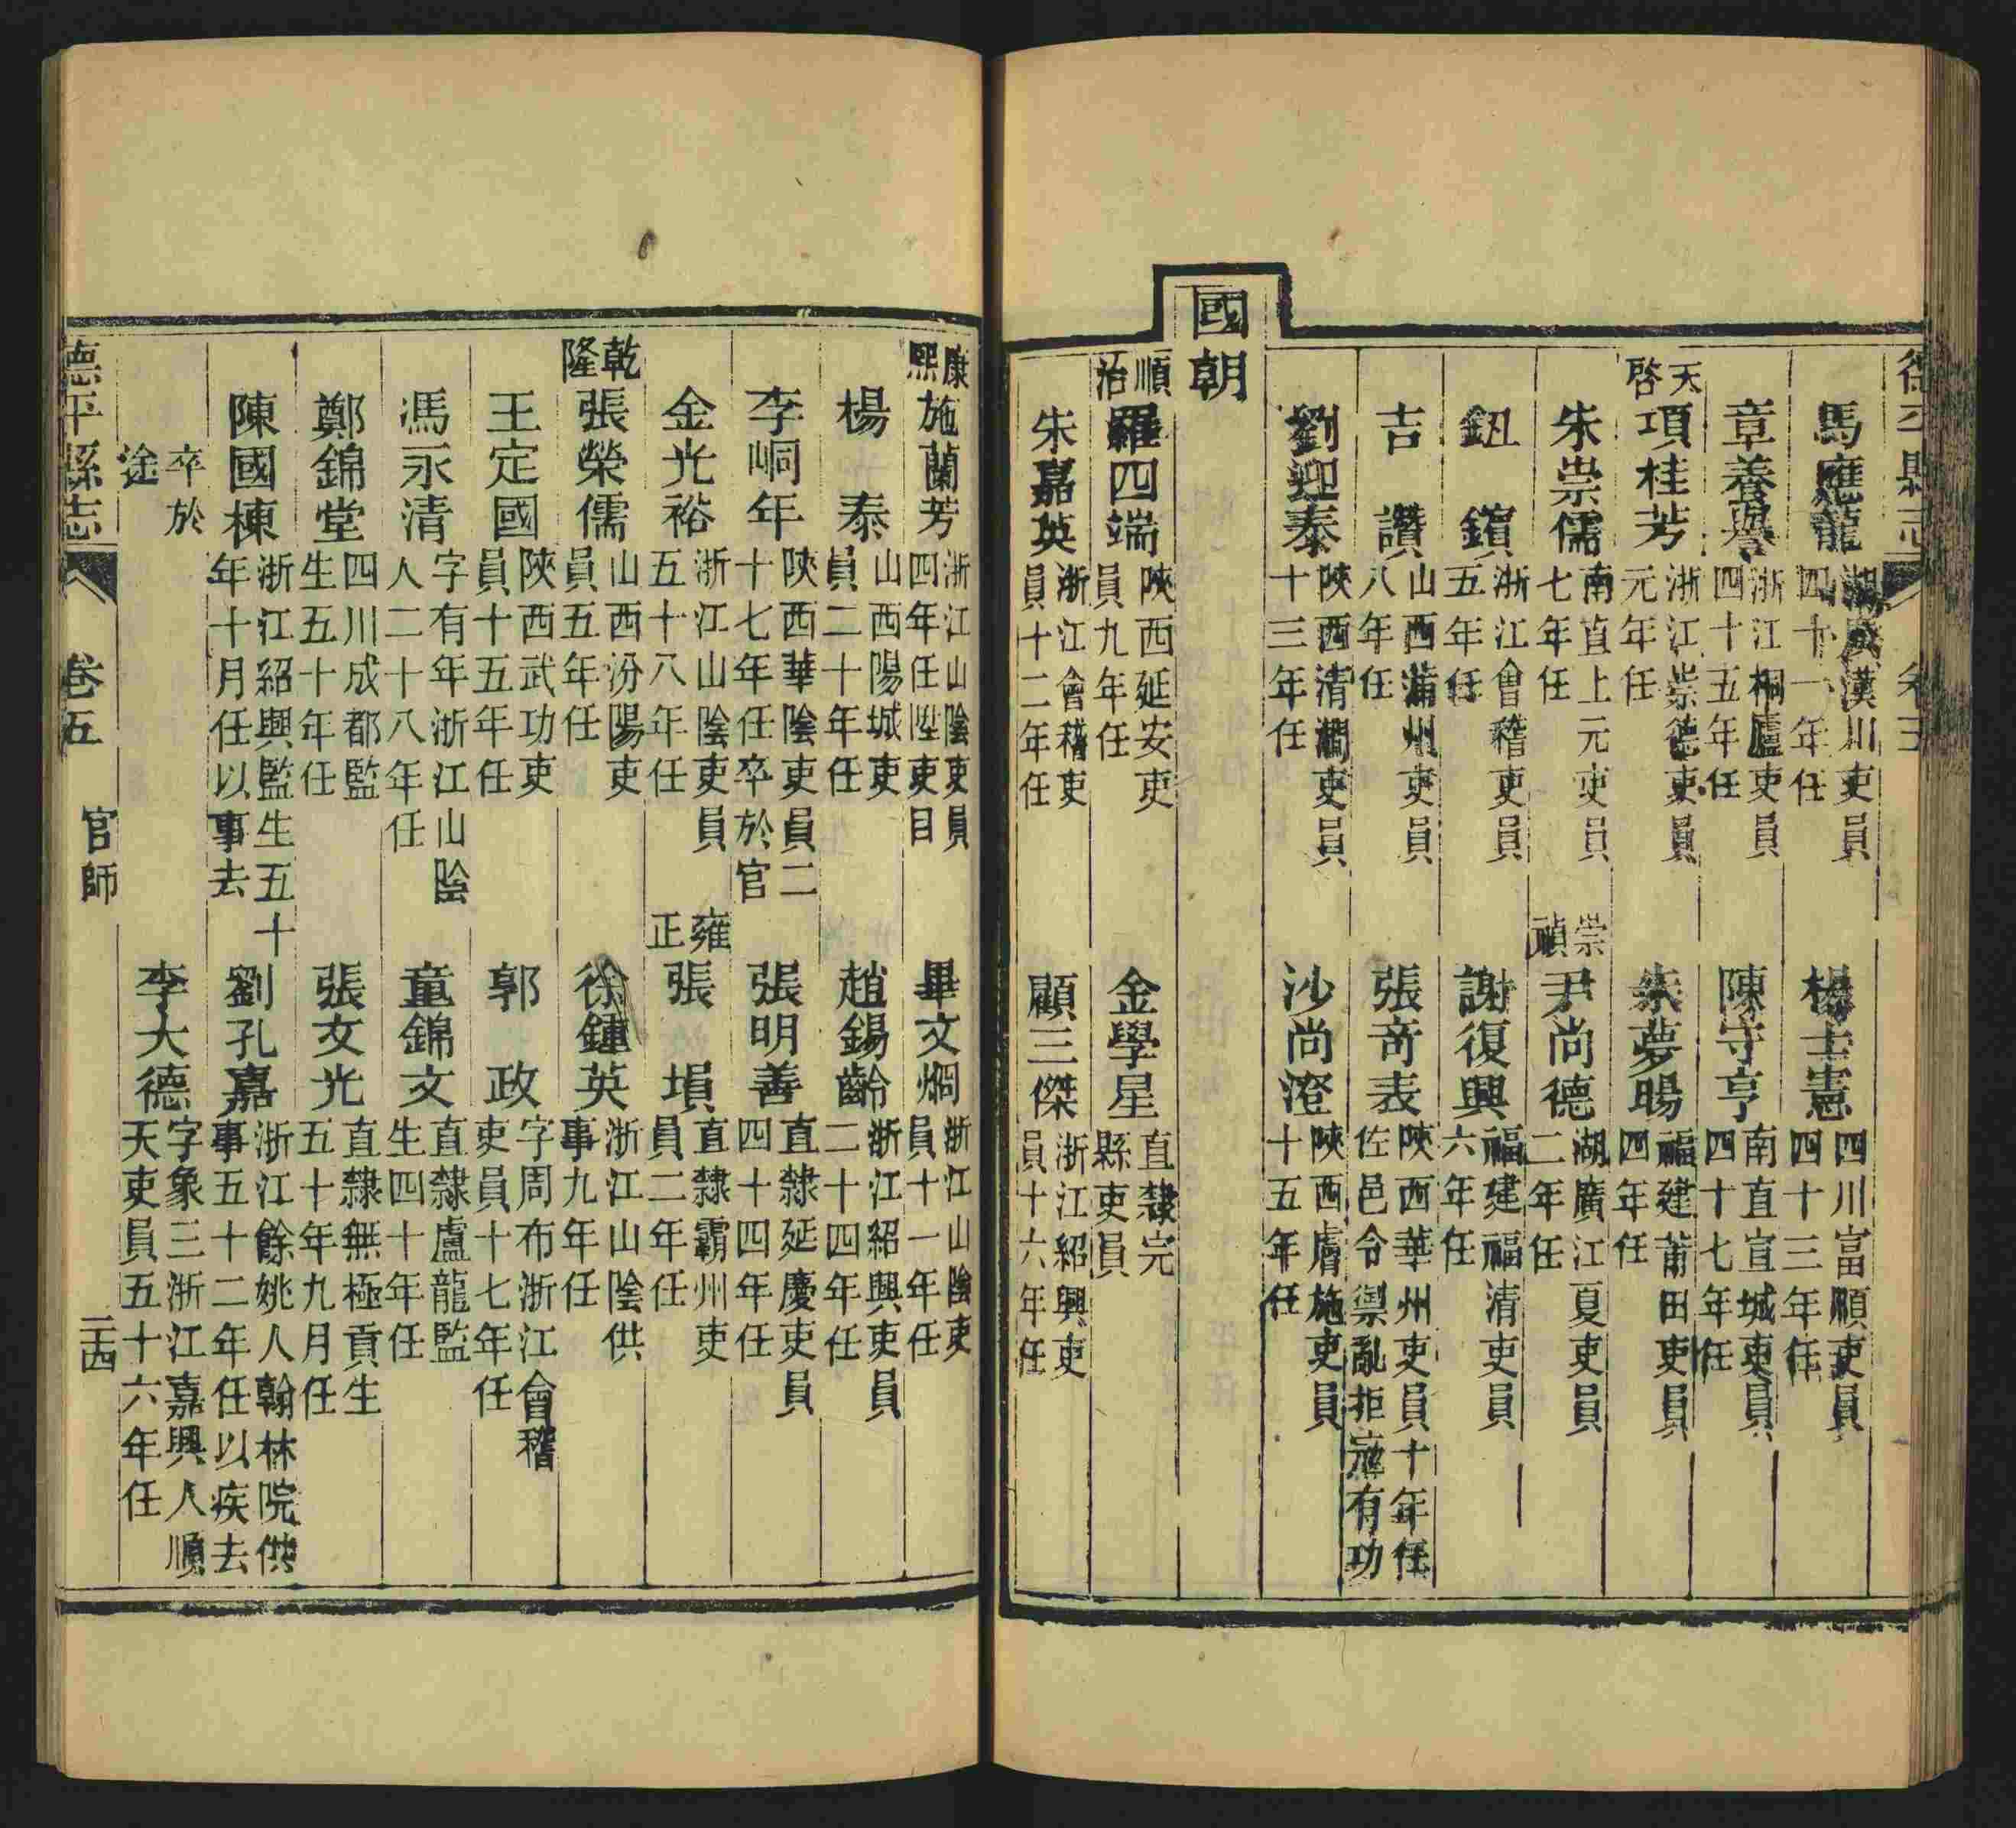 德平縣志 卷五
馬應龍 湖廣漢川吏員四十一年任
楊士憲 四川富順吏員四十三年任
章善譽 浙江桐廬吏員四十五年任
陳守亨 南直宣城吏員四十七年任
天啓 項桂芳 浙江崇德吏員元年任
朱夢暘 福建莆田吏員四年任
朱崇儒 南直上元吏員七年任
崇禎 尹尚德 湖廣江夏吏員二年任
鈕鑌 浙江會稽吏員五年任
謝復興 福建福清吏員六年任
吉讚 山西蒲州吏員八年任
張奇表 陝西華州吏員十年任佐邑令禦亂拒寇有功
劉迎泰 陝西清澗吏員十三年任
沙尚澄 陝西膚施吏員十五年任
國朝
順治 羅四端 陝西延安吏員九年任
金學星 直隸完縣吏員
朱嘉英 浙江會稽吏員十二年任
顧三傑 浙江紹興吏員十六年任
康熙 施蘭芳 浙江山陰吏員四年任陞吏目
畢文炯 浙江山陰吏員十一年任
楊泰 山西陽城吏員二十年任
趙錫齡 浙江紹興吏員二十四年任
李峒年 陝西華陰吏員二十七年任卒於官
張明善 直隸延慶吏員四十四年任
金光裕 浙江山陰吏員五十八年任
雍正 張塤 直隸霸州吏員二年任
乾隆 張榮儒 山西汾陽吏員五年任
徐鍾英 浙江山陰供事九年任
王定國 陝西武功吏員十五年任
郭政 字周布浙江會稽吏員十七年任
馮永清 字有年浙江山陰人二十八年任
童錦文 直隸盧龍監生四十年任
鄭錦堂 四川成都監生五十年任
張文光 直隸無極貢生五十年九月任
陳國棟 浙江紹興監生五十年十月任以事去
劉孔嘉 浙江餘姚人翰林院供事五十二年任以疾去
卒於途
李大德 字象三浙江嘉興人順天吏員五十六年任
德平縣志 卷五 官師 二四